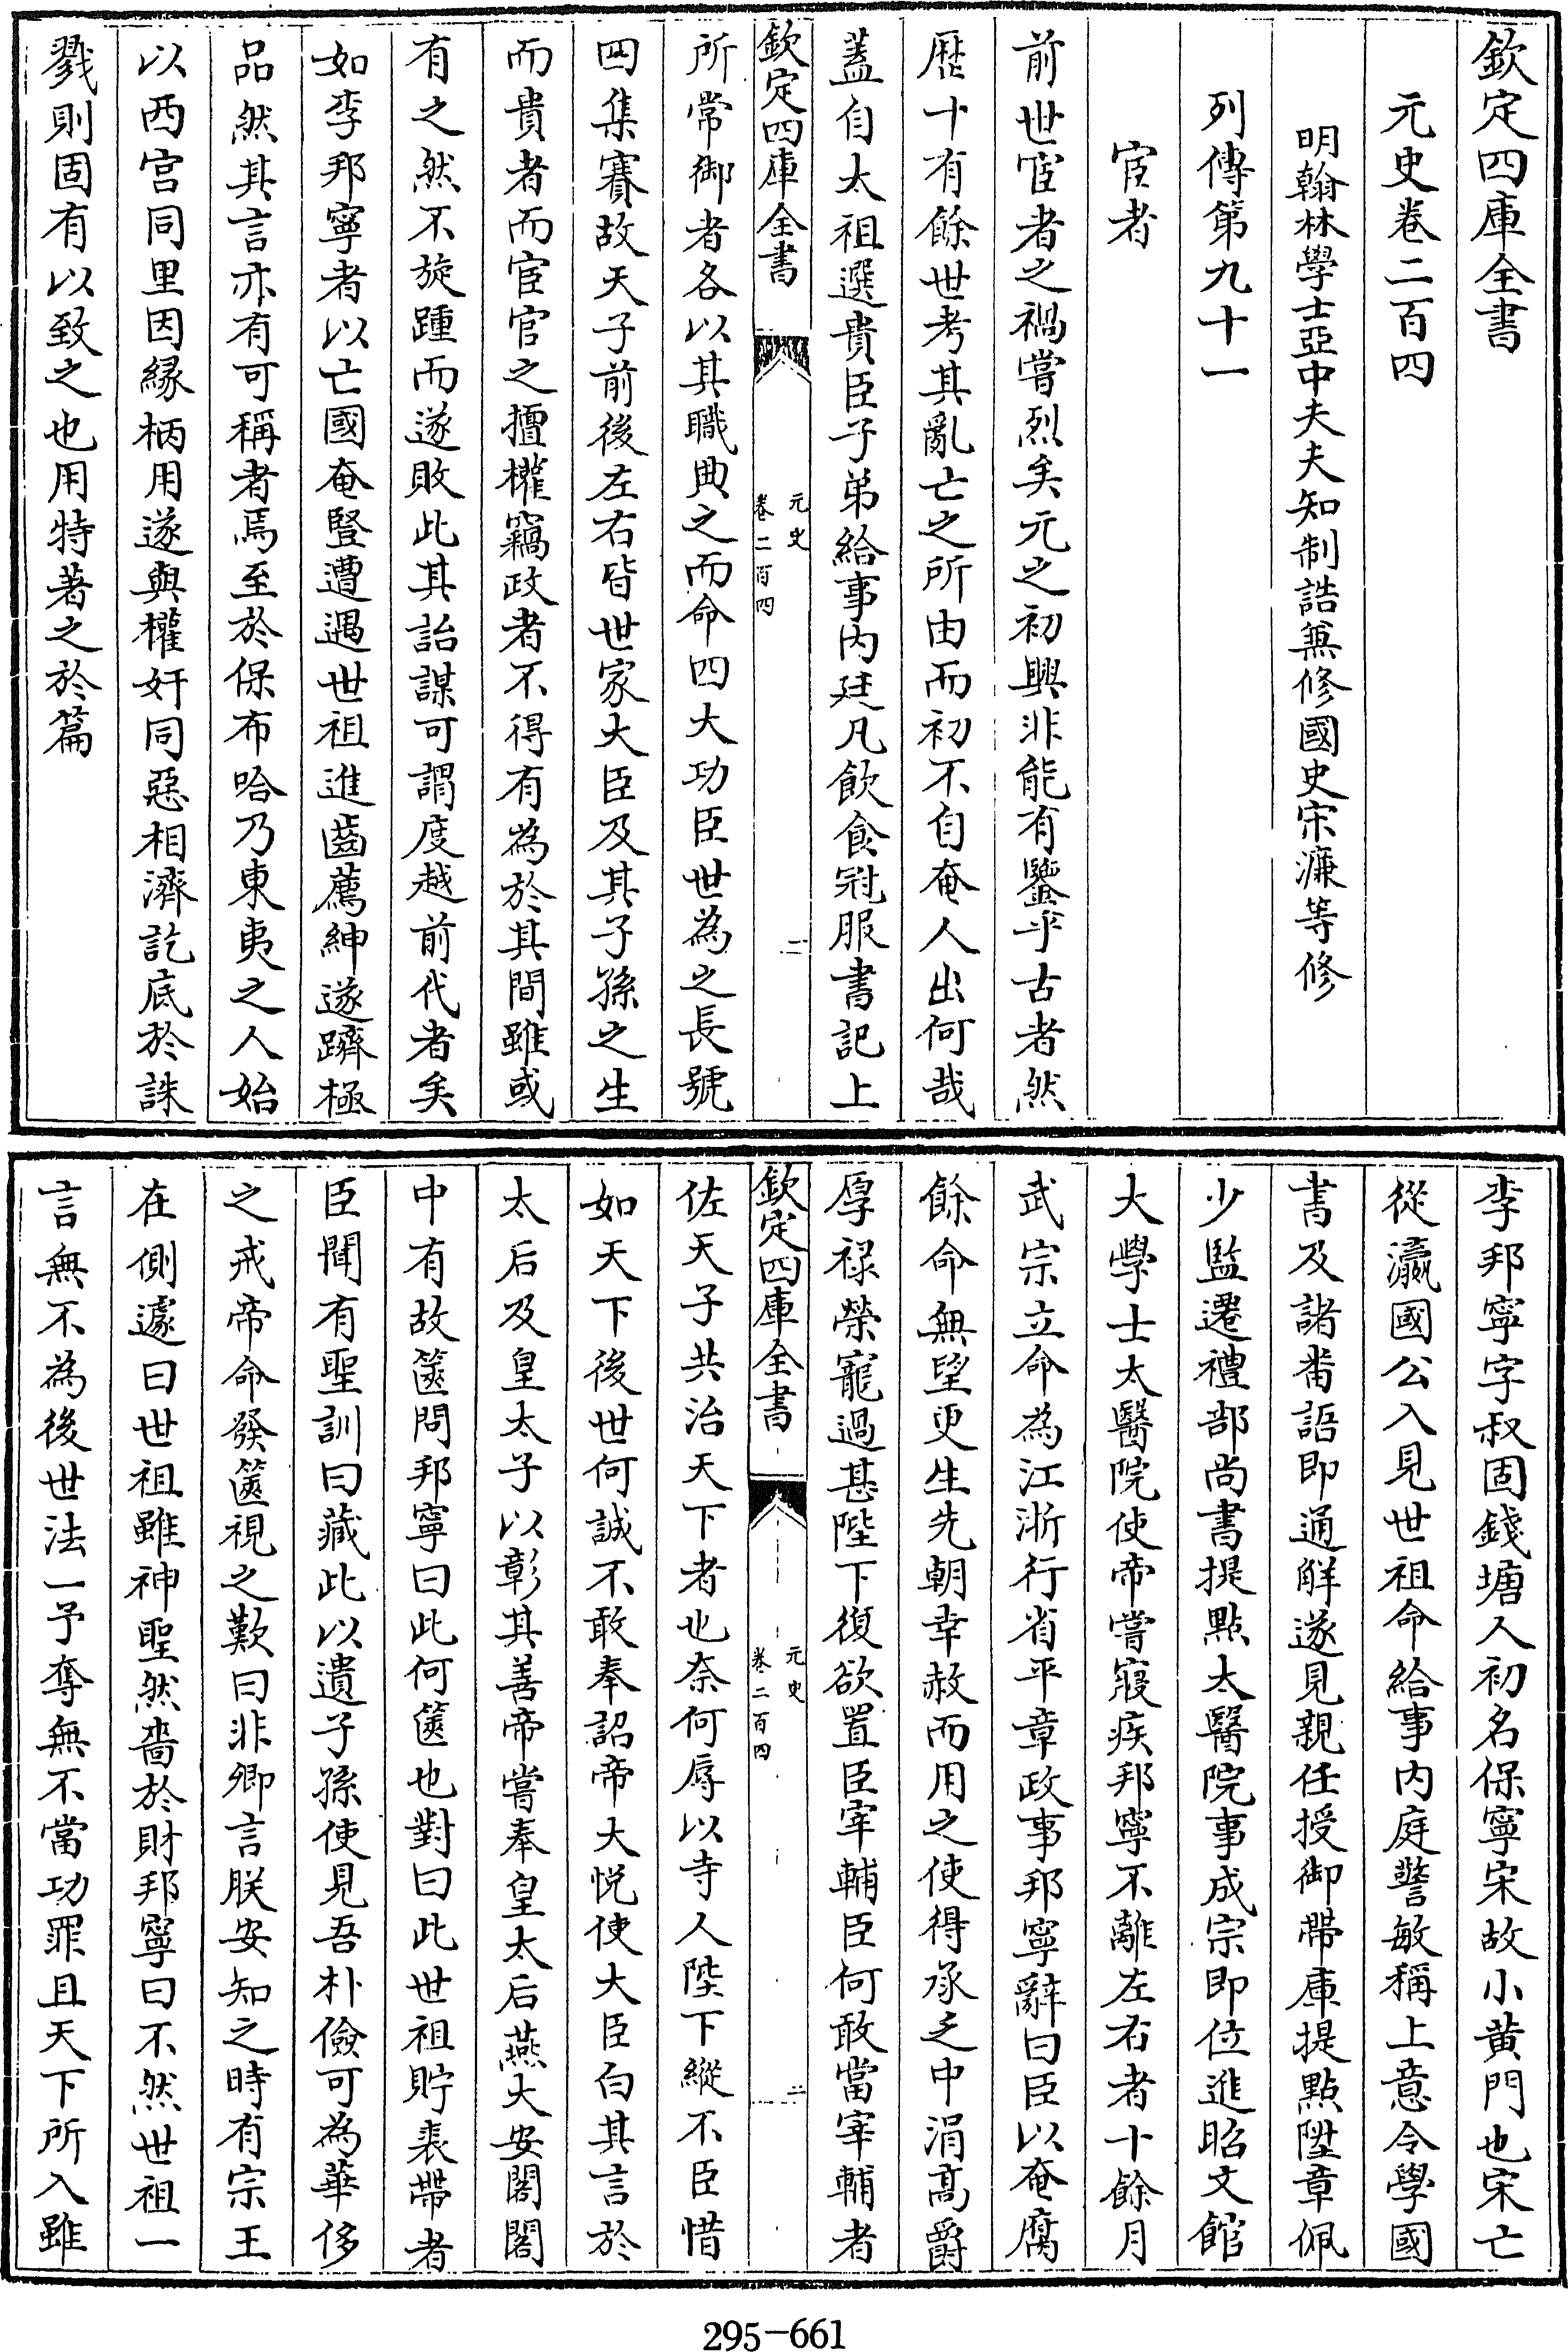 欽定四庫全書
元史卷二百四
明翰林學士亞中大夫知制誥兼修國史宋濂等修
列傳第九十一
宦者
前世宦者之禍嘗烈矣元之初興非能有鑒乎古者然
歴十有餘世考其亂亡之所由而初不自奄人出何哉
蓋自太祖選貴臣子弟給事內廷凡飲食冠服書記上
欽定四庫全書
元史
卷二百四
一
所常御者各以其職典之而命四大功臣世為之長號
四集賽故天子前後左右皆世家大臣及其子孫之生
而貴者而宦官之擅權竊政者不得有為於其間雖或
有之然不旋踵而遂敗此其詒謀可謂度越前代者矣
如李邦寧者以亡國奄豎遭遇世祖進齒薦紳遂躋極
品然其言亦有可稱者焉至於保布哈乃東夷之人始
以西宫同里因緣柄用遂與權奸同惡相濟訖底於誅
戮則固有以致之也用特著之於篇
李邦寧字叔固錢塘人初名保寧宋故小黄門也宋亡
從瀛國公入見世祖命給事内庭警敏稱上意令學國
書及諸畨語即通解遂見親任授御帶庫提點陞章佩
少監遷禮部尚書提點太醫院事成宗即位進昭文館
大學士太醫院使帝嘗寢疾邦寧不離左右者十餘月
武宗立命為江浙行省平章政事邦寧辭曰臣以奄腐
餘命無望更生先朝幸赦而用之使得承乏中涓髙爵
厚禄榮寵過甚陛下復欲置臣宰輔臣何敢當宰輔者
欽定四庫全書
元史
卷二百四
二
佐天子共治天下者也奈何辱以寺人陛下縱不臣惜
如天下後世何誠不敢奉詔帝大悦使大臣白其言於
太后及皇太子以彰其善帝嘗奉皇太后燕大安閣閣
中有故篋問邦寧曰此何篋也對曰此世祖貯裘帶者
臣聞有聖訓曰藏此以遺子孫使見吾朴儉可為華侈
之戒帝命發篋視之歎曰非卿言朕安知之時有宗王
在側遽曰世祖雖神聖然嗇於財邦寧曰不然世祖一
言無不為後世法一予奪無不當功罪且天下所入雖
295-661